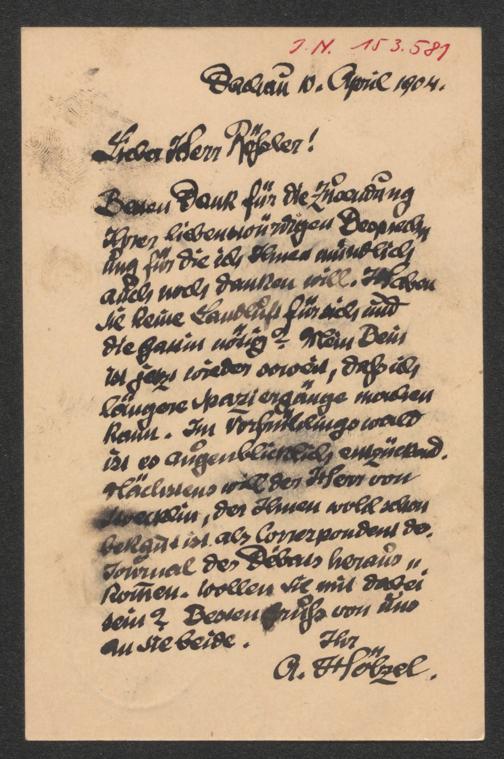 J. N. 153.581
Dachau 10. April 1904.
Lieber Herr Rößler!
Besten Dank für die Zusendung
Ihrer liebenswürdigen Besprech
ung für die ich Ihnen mündlich
auch noch danken will. Haben
Sie keine Landluft für sich und
die Frau nötig? Mein Bein
ist jetzt wieder soweit, daß ich
längere Spaziergänge machen
kann. Im Vorfrühlingswald
ist es augenblicklich entzückend.
Nächstens will der Herr von
der Ihnen wohl schon
bekannt ist als Correspondent des
Journal des Débats heraus„
kom̄en. Wollen Sie mit dabei
sein? Besten Gruß von uns
an Sie beide. Ihr
A. Hölzel.